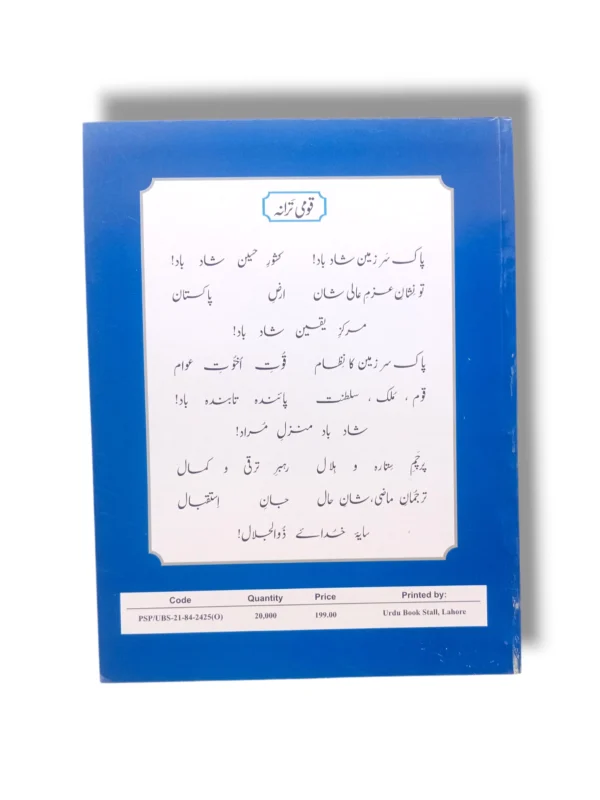 قومی ترانہ
پاک سَر زمین شاد باد! کشورِ حسین شاد باد!
تو نِشانِ عزمِ عالی شان ارضِ پاکستان
مرکزِ یقین شاد باد!
پاک سر زمین کا نِظام قُوّتِ اُخوّتِ عوام
قوم ، مُلک ، سلطنت پائندہ تابندہ باد!
شاد باد منزلِ مُراد!
پرچمِ سِتارہ و ہِلال رہبرِ ترقی و کمال
ترجمانِ ماضی، شانِ حال جانِ اِستقبال
سایۂ خدائے ذُوالجلال!
Code Quantity Price Printed by:
PSP/UBS-21-84-2425(O) 20,000 199.00 Urdu Book Stall, Lahore